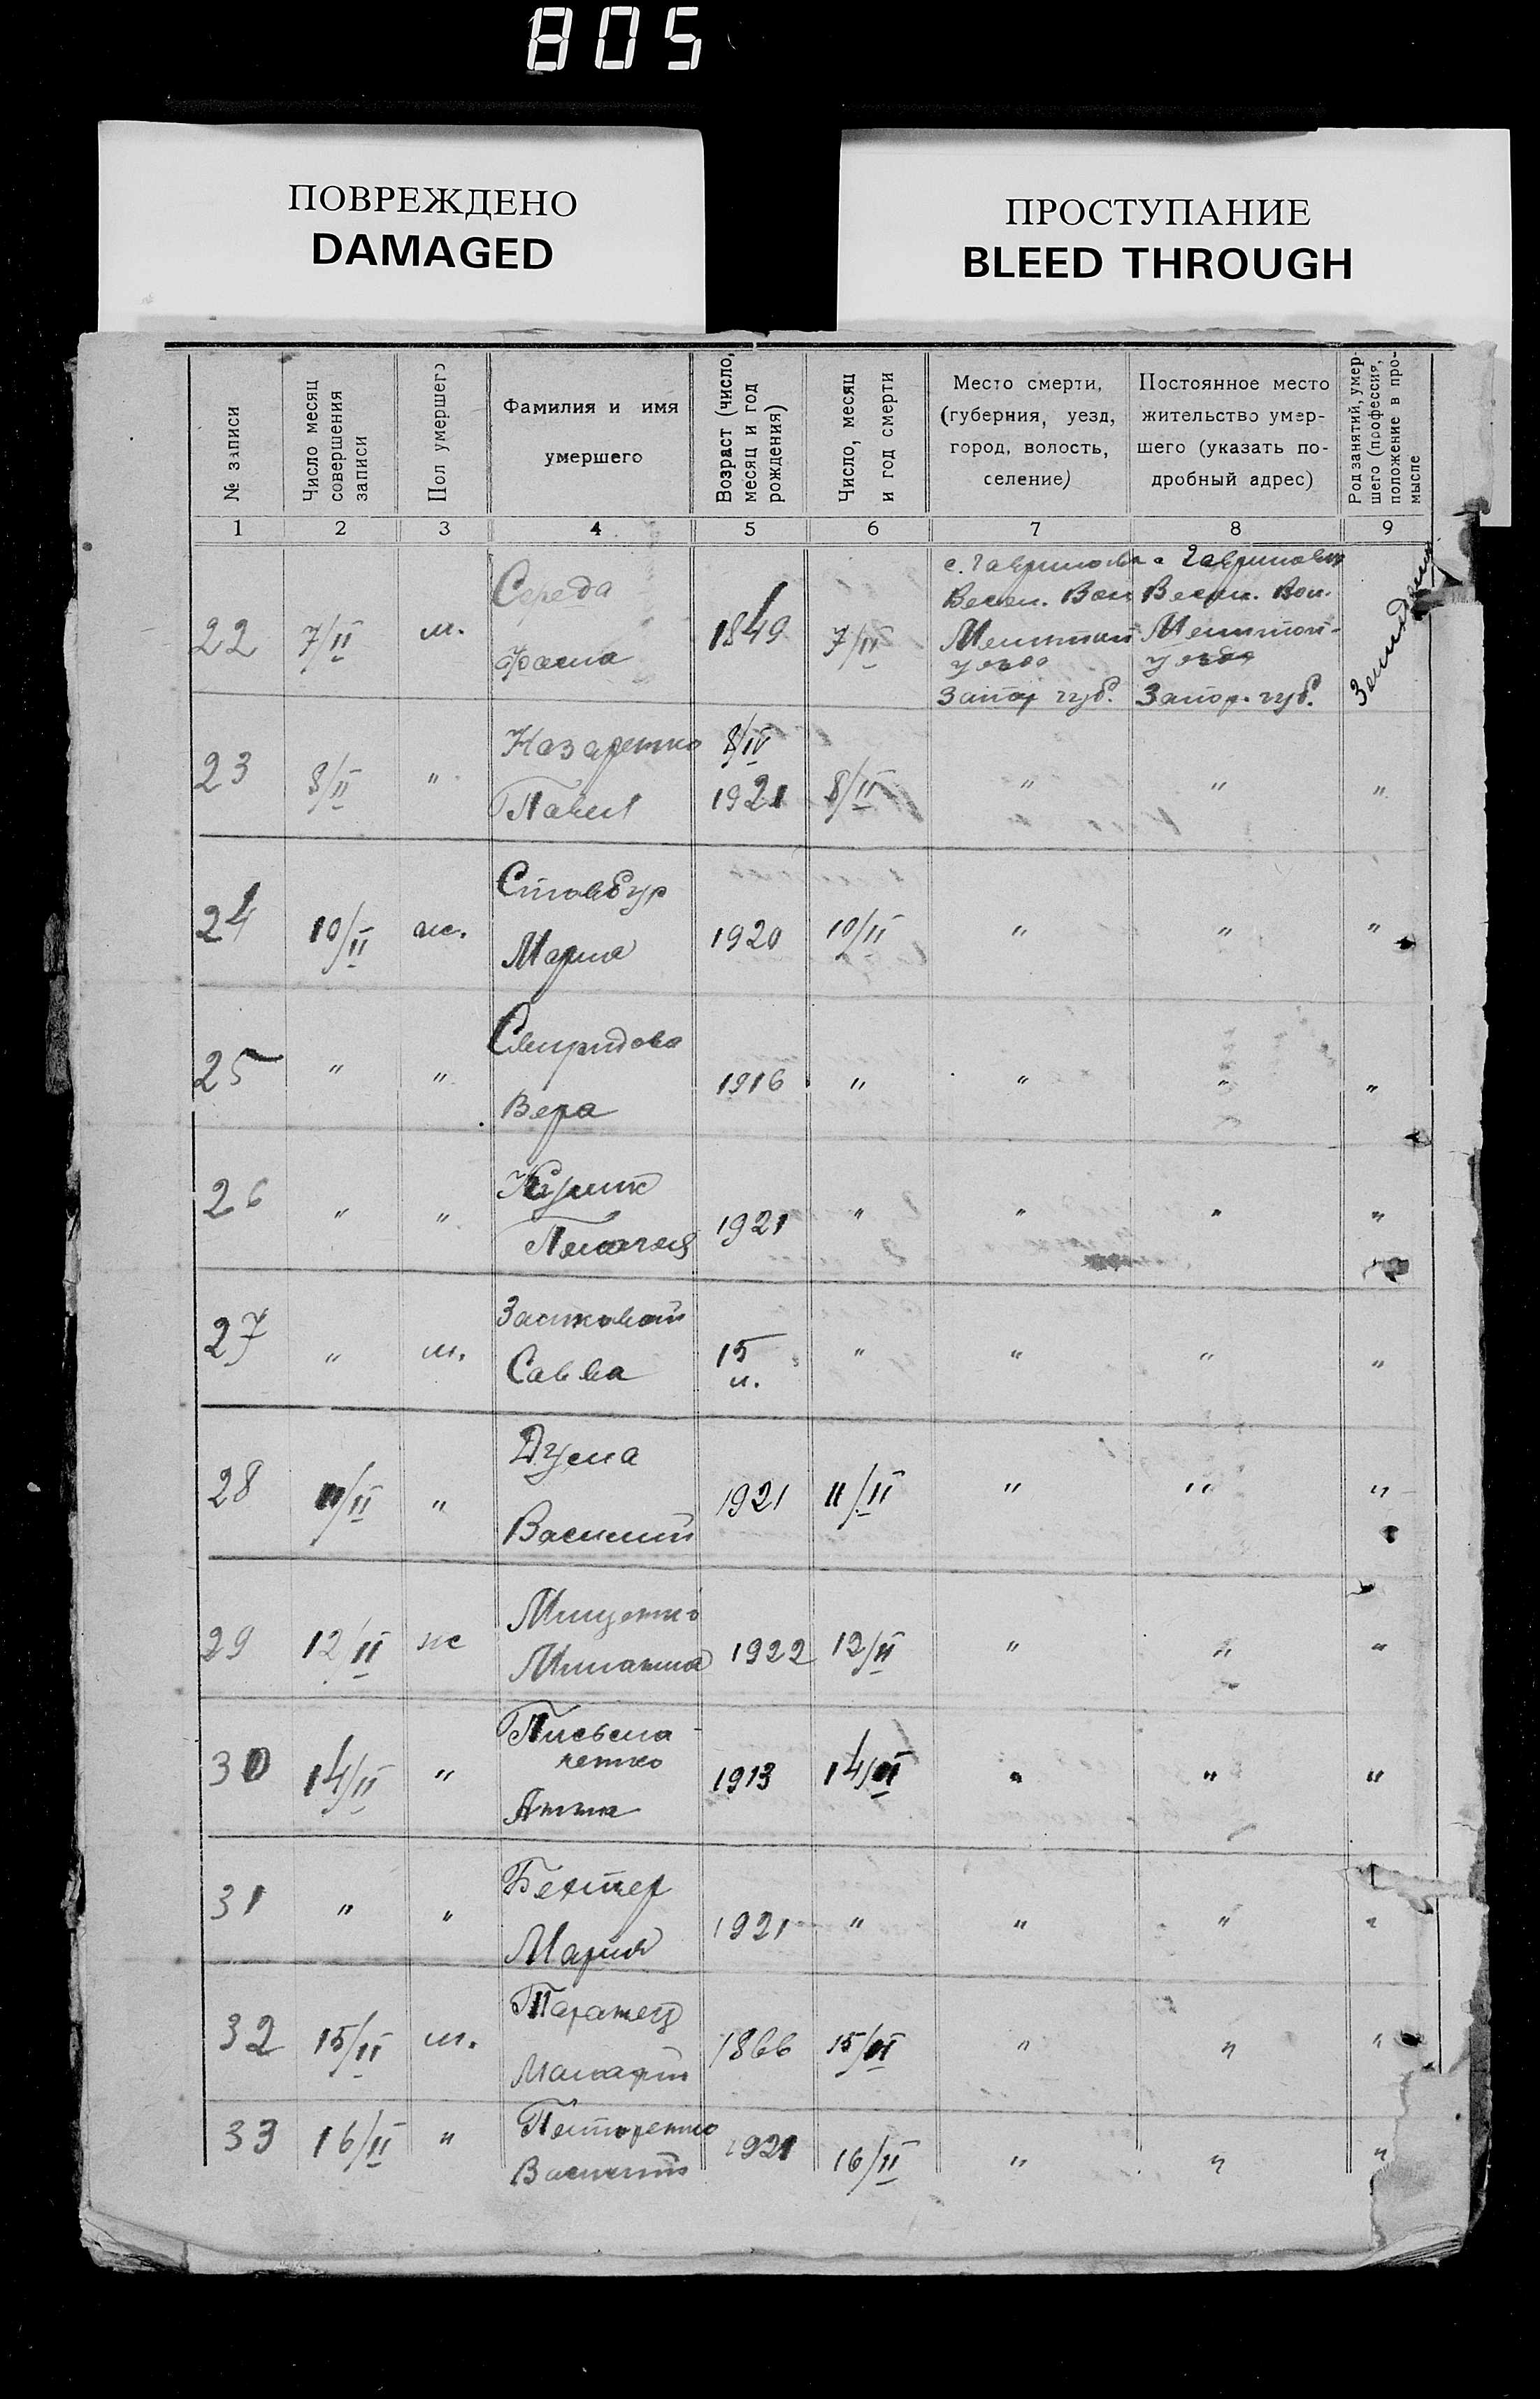 805
ПОВРЕЖДЕНО
DAMAGED
ПРОСТУПАНИЕ
BLEED THROUGH
№ записи
Число месяц
совершения
записи
Пол умершего
Фамилия и имя
умершего
Возраст (число,
месяц и год
рождения)
Число, месяц
и год смерти
Место смерти,
(губерния, уезд,
город, волость,
селение)
Постоянное место
жительство умер-
шего (указать по-
дробный адрес)
Род занятий, умер-
шего (профессия,
положение в про-
мысле
1 2 3 4 5 6 7 8 9
22 7/II м. Середа
Фома
1849 7/II
с. Гавриловка
Весел. Вол
Мелитоп
уезда
Запор губ.
с Гавриловка
Весел. Вол.
Мелитоп-
уезда
Запор. губ.
23 8/II " Назаренко
Павел
8/IV
1921 8/II " " "
24 10/II ж. Стовбур
Мария
1920 10/II " " "
25 " " Свиридова
Вера
1916 " " " "
26 " " Кулик
Пелагея
1921 " " " "
27 " м.
Савва
15
" " " "
28 11/II " Дума
Василий
1921 11/II " " "
29 12/II ж Мищенко
1922 12/II " " "
30 14/II " Письма
ченко
Анна
1913 14/II " " "
31 " "
Мария
1921 " " " "
32 15/II м. Таранец
1866 15/II " " "
33 16/II " Нестеренко
Василий
1921 16/II " " "